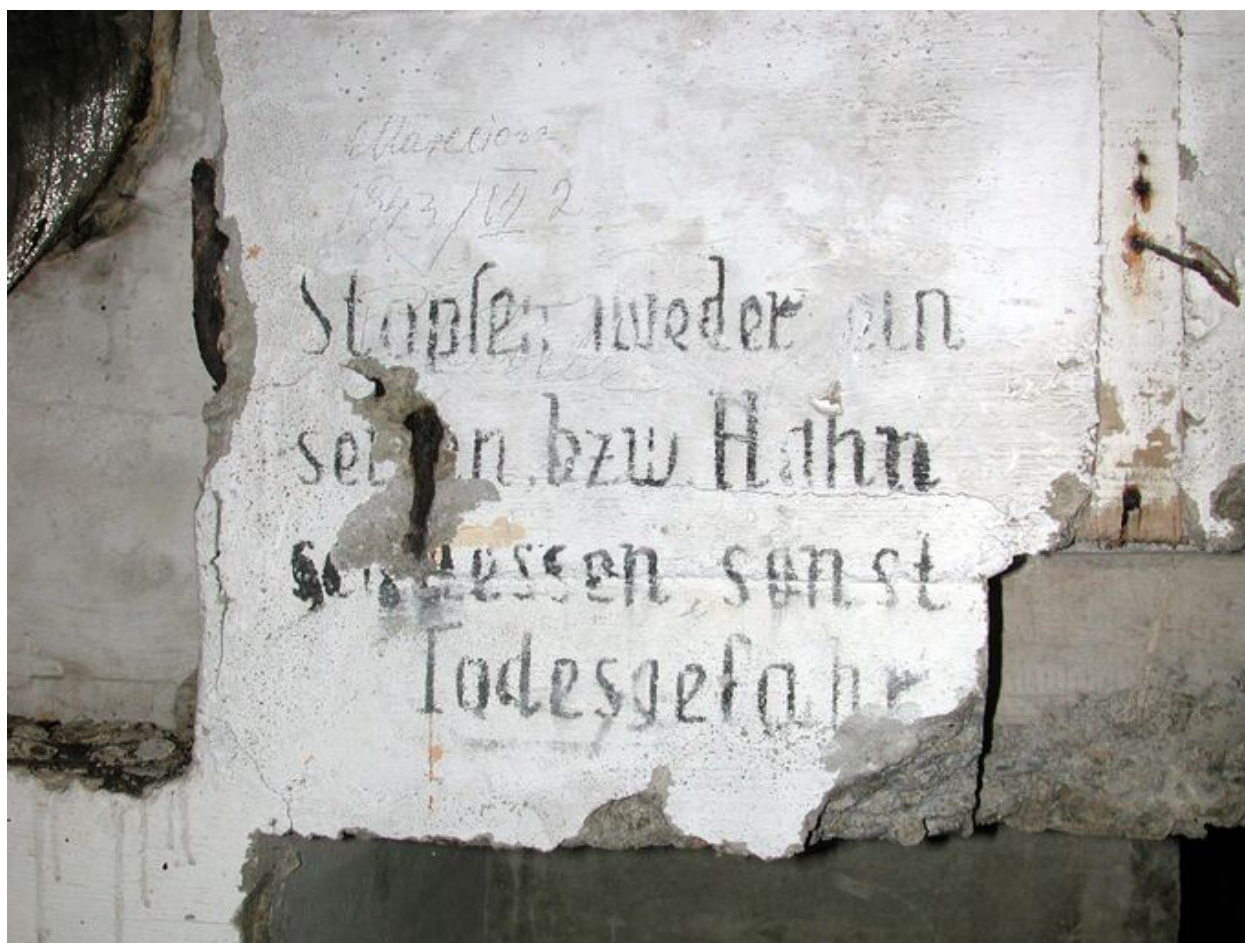 Stopfen wieder ein
setzen bzw. Hahn
schliessen sonst
Todesgefahr